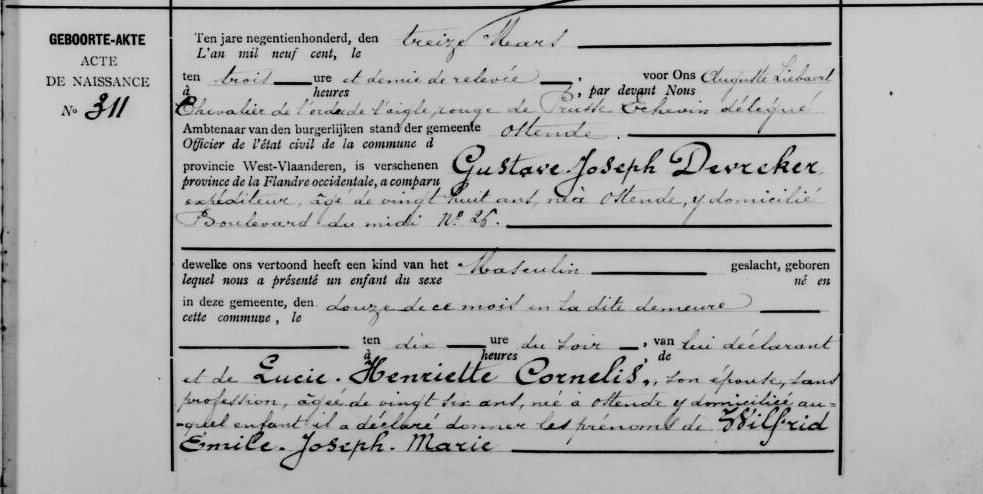 GEBOORTE-AKTE
ACTE
DE NAISSANCE
No 311
Ten jare negentienhonderd, den treize Mars
L'an mil neuf cent, le
ten trois ure et demie de relevée ; voor Ons Auguste Liebaert
à heures ; par devant Nous
Chevalier de l'ordre de l'aigle rouge de Prusse Echevin délégué
Ambtenaar van den burgerlijken stand der gemeente Ostende.
Officier de l'état civil de la commune d
provincie West-Vlaanderen, is verschenen Gustave Joseph Devreker
province de la Flandre occidentale, a comparu
expéditeur, âgé de vingt huit ans, né à Ostende, y domicilié
Boulevard du midi No. 26.
dewelke ons vertoond heeft een kind van het Masculin geslacht, geboren
lequel nous a présenté un enfant du sexe né en
in deze gemeente, den douze de ce mois en la dite demeure
cette commune, le
ten dix ure du soir, van lui déclarant
à heures , de
et de Lucie-Henriette Cornelis, son épouse, sans
profession, âgée de vingt six ans, née à Ostende y domiciliée au-
-quel enfant il a déclaré donner les prénoms de Wilfrid
Emile-Joseph-Marie